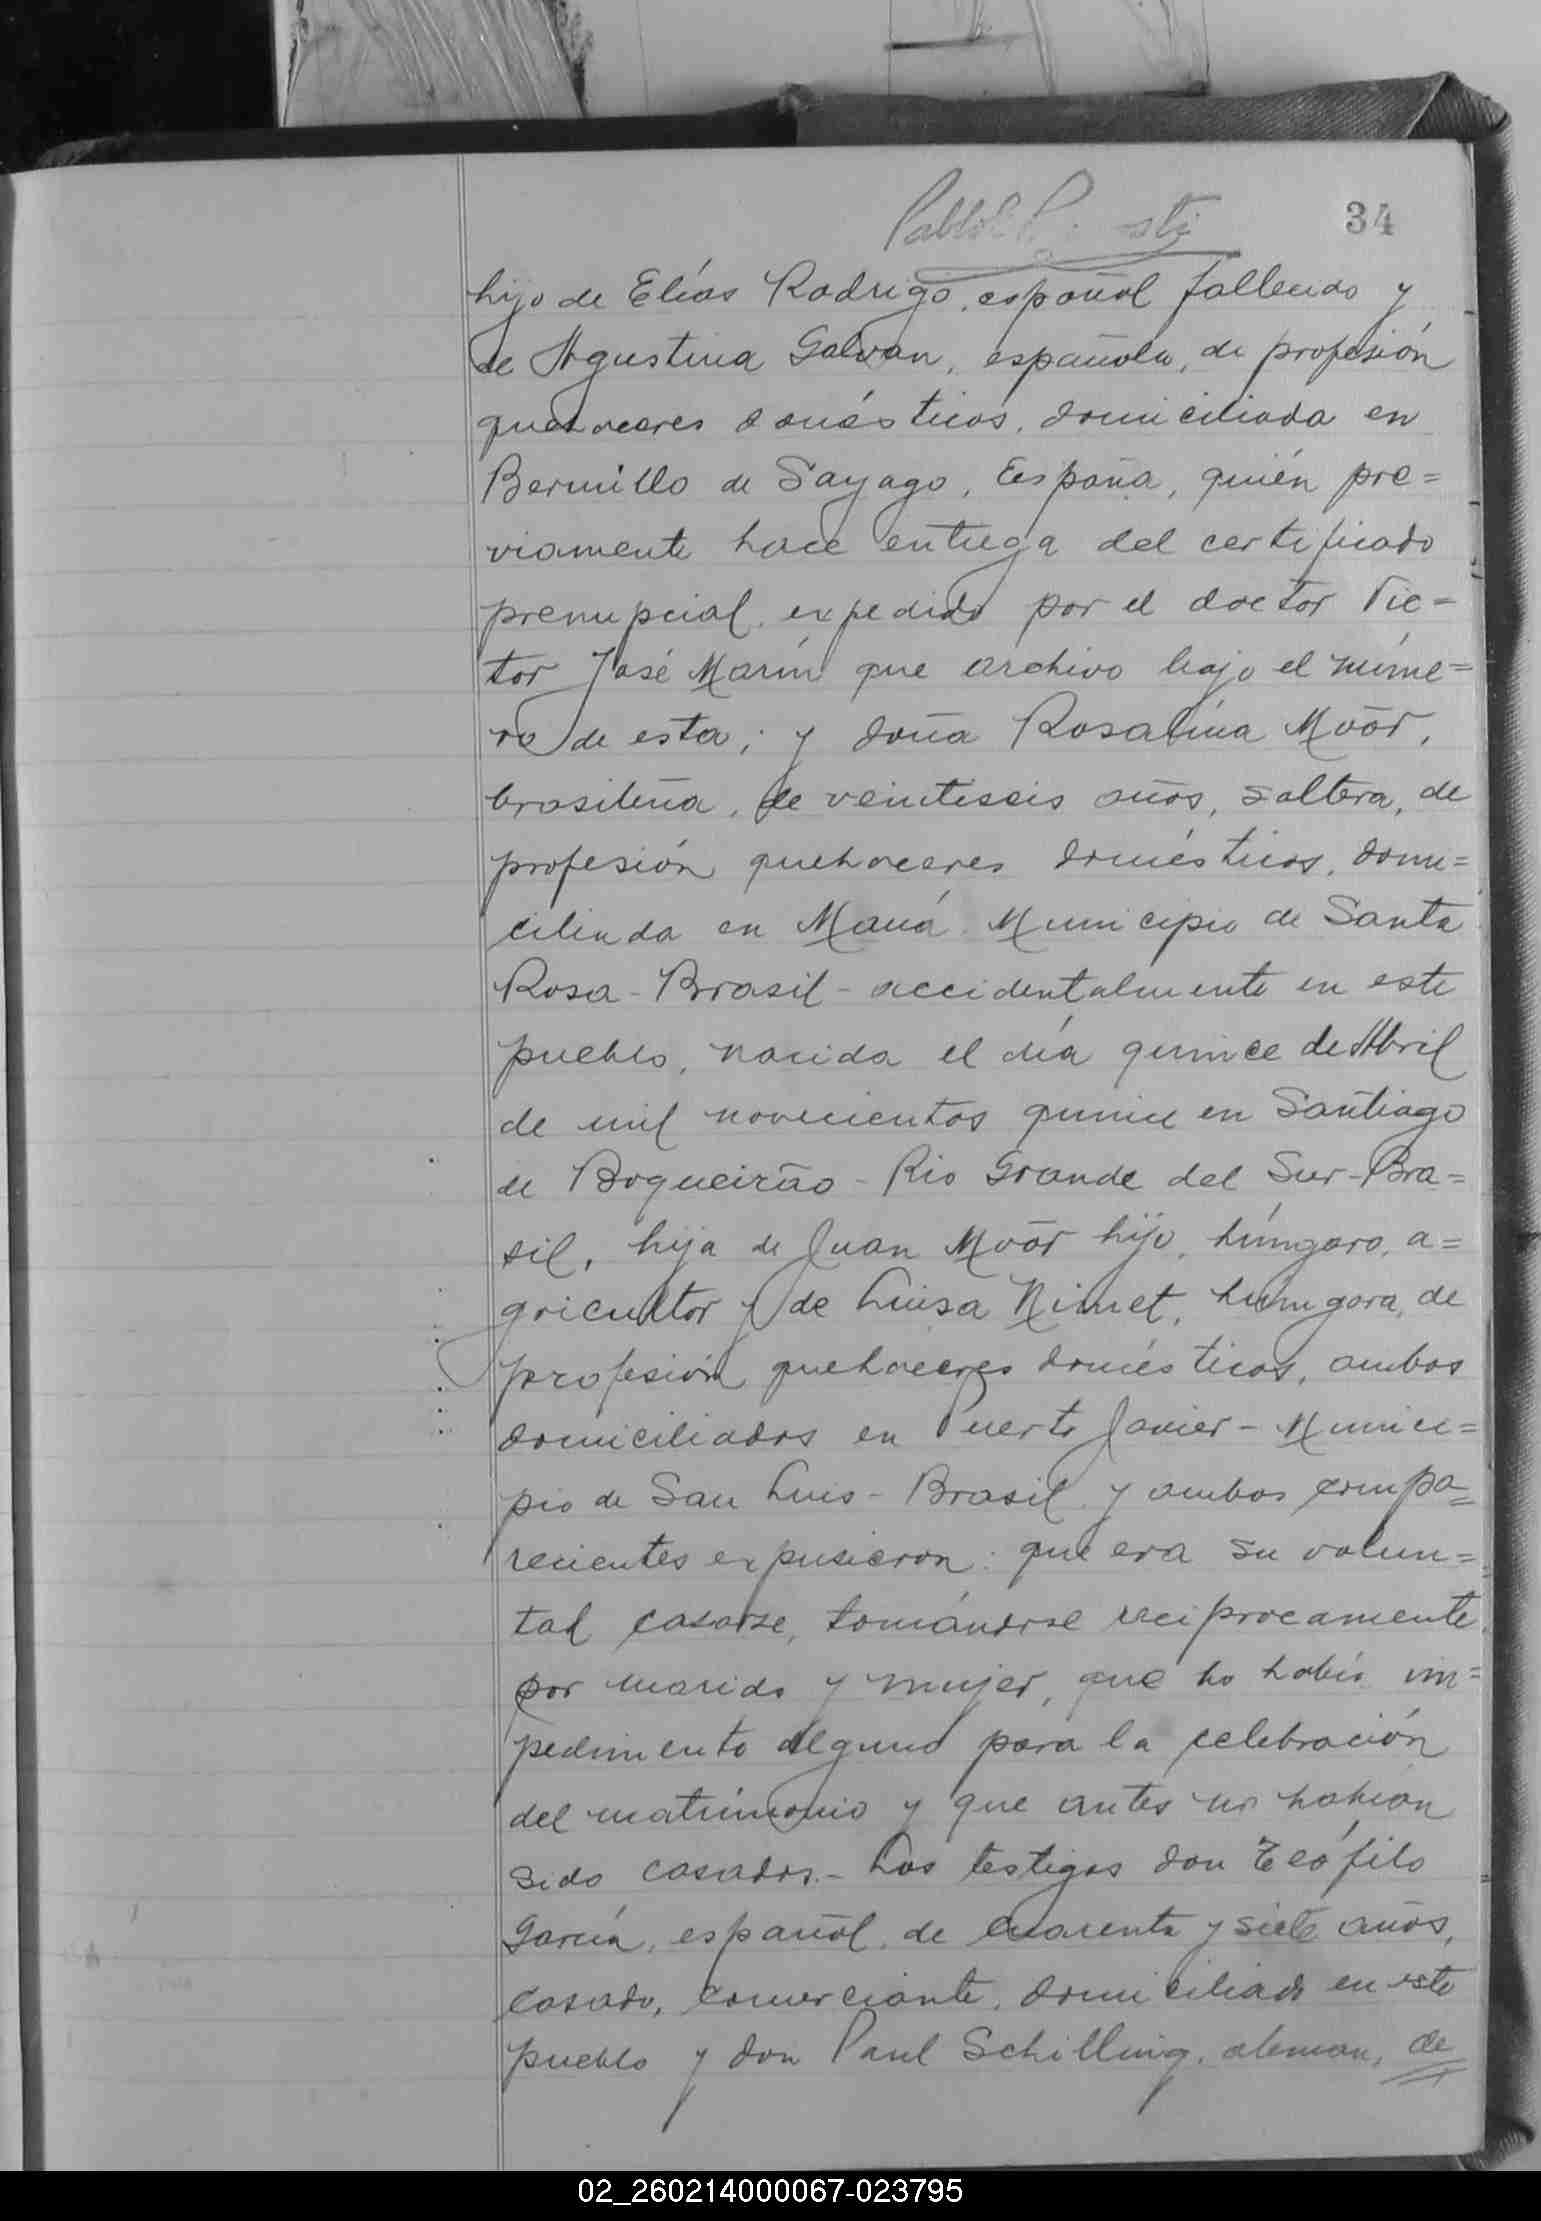 34
hijo de Elías Rodrigo, español fallecido y
de Agustina Galvan, española, de profesión
quehaceres domésticos, domiciliada en
Bermillo de Sayago, España, quién pre=
viamente hace entrega del certificado
prenupcial expedido por el doctor Vic=
tor José Marín que archivo bajo el núme=
ro de esta; y doña Rosalina Moör,
brasileña, de veintiseis años, soltera, de
profesión quehaceres domésticos, domi=
ciliada en Mauá Municipio de Santa
Rosa - Brasil - accidentalmente en este
pueblo, nacida el día quince de Abril
de mil novecientos quince en Santiago
de Boqueirão - Rio Grande del Sur - Bra=
sil, hija de Juan Moör hijo, húngaro, a=
gricultor y de Luisa Nimet, húngara, de
profesión quehaceres domésticos, ambos
domiciliados en Puerto Javier - Munici=
pio de San Luis - Brasil y ambos compa=
recientes expusieron: que era su volun=
tad casarse, tomándose reciprocamente
por marido y mujer, que no había im=
pedimento alguno para la celebración
del matrimonio y que antes no habían
sido casados.- Los testigos don Teófilo
García, español, de cuarenta y siete años,
casado, comerciante, domiciliado en este
pueblo y don Paul Schilling, aleman, de
02_260214000067-023795